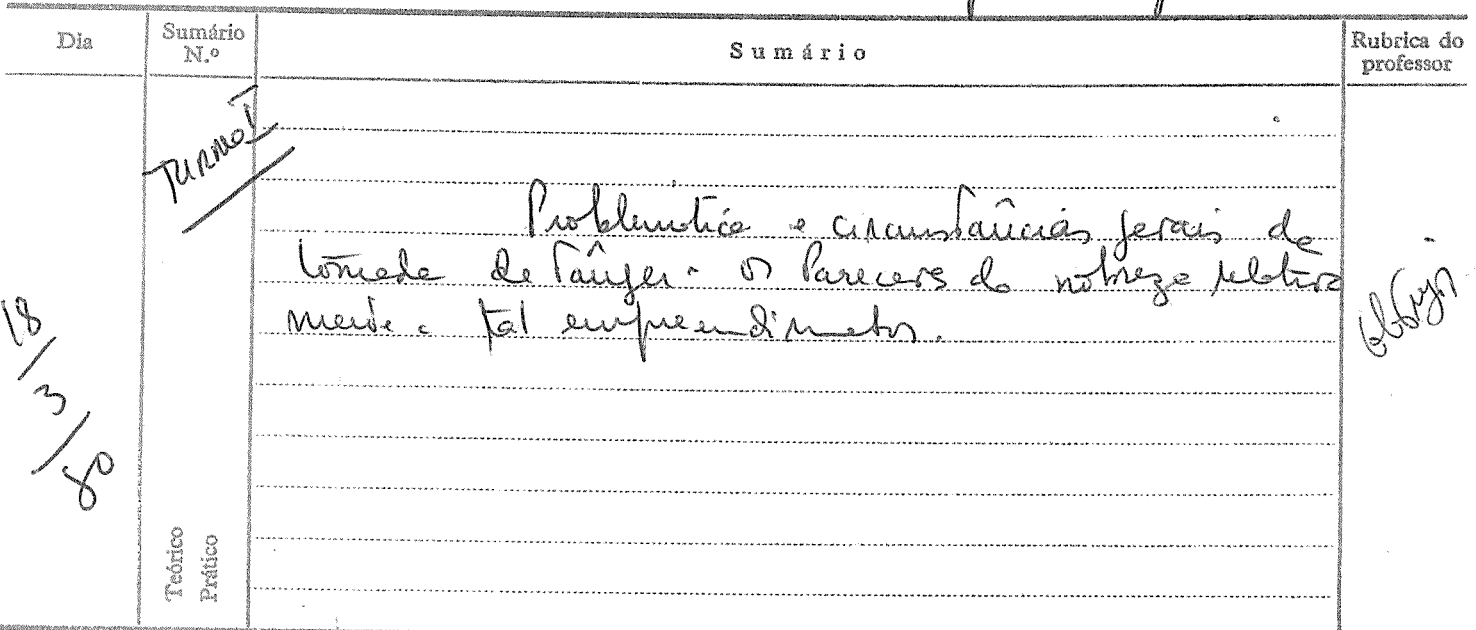 Dia
Sumário N.º
Sumário
Rubrica do professor
Turma I
Problemática e circunstâncias gerais da
tomada de Tânger. Os Pareceres da nobreza relativa
mente a tal empreendimento.
18/3/80
Teórico
Prático